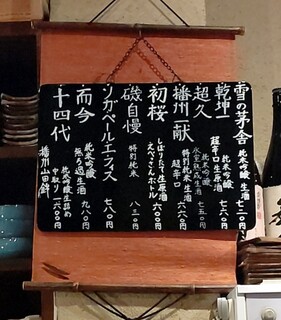 雪の茅舎 純米吟醸 生酒
乾坤一 純米吟醸 超辛口生原酒
超久 純米吟醸 氷室熟成生酒 七五〇
播州一献 純米 超辛口 生酒 七六〇
初桜 しぼりたて生原酒 えべっさんボトル 六〇〇
磯自慢 特別純米 八三〇
ソガペールエフィス 七八〇
而今 純米吟醸 無ろ過生酒 九八〇
十四代 純米吟醸生詰め 中取り 一六〇〇
播州山田錦